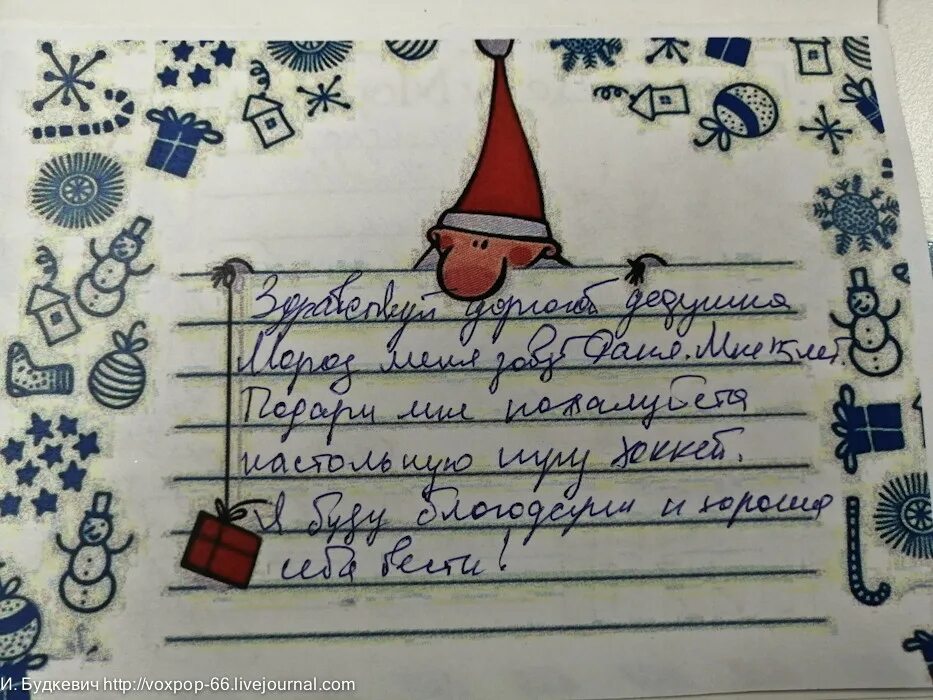 Здравствуй дорогой дедушка
Мороз меня зовут Даня. Мне лет
Подари мне пожалуйста
настольную игру хоккей.
Я буду благодарен и хорошо
себя вести!
И. Будкевич http://voxpop-66.livejournal.com